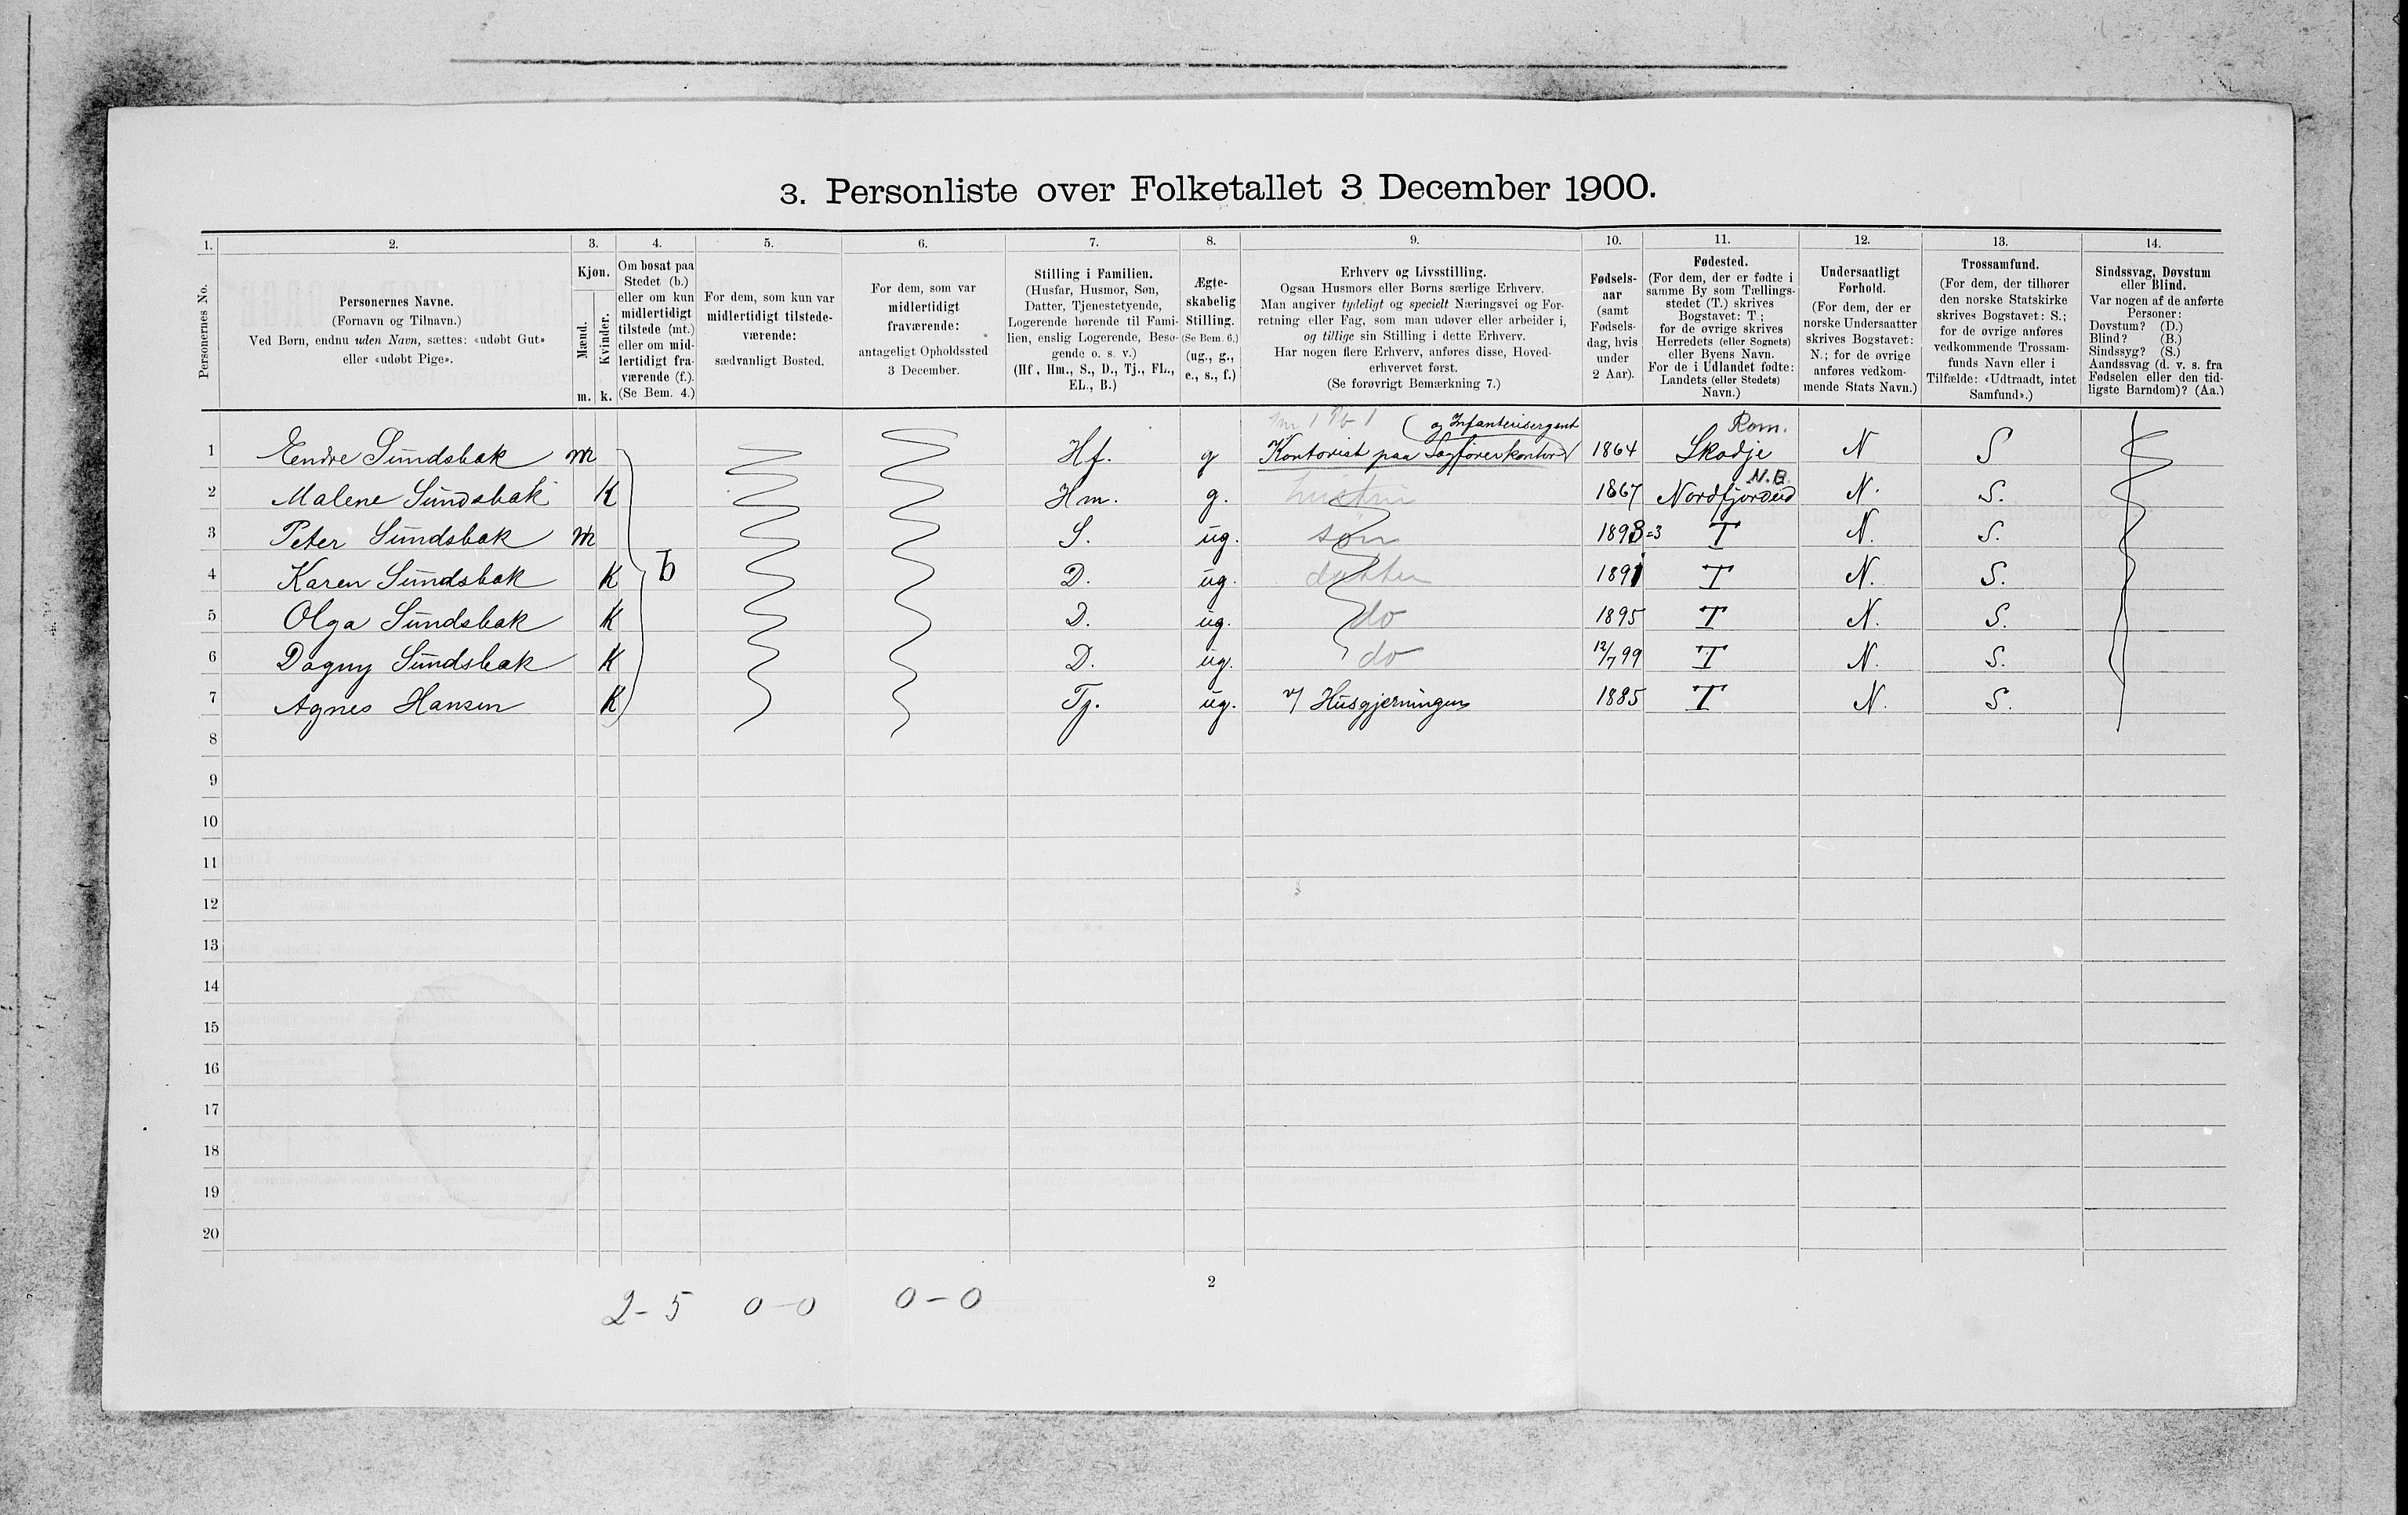 3. Personliste over Folketallet 3 December 1900.
1. 2. 3. 4. 5. 6. 7. 8. 9. 10. 11. 12. 13. 14.
Personernes No.
Personernes Navne.
(Fornavn og Tilnavn.)
Ved Børn, endnu uden Navn, sættes: «udøbt Gut»
eller «udøbt Pige».
Kjøn.
Mænd.
Kvinder.
m. k.
Om bosat paa
Stedet (b.)
eller om kun
midlertidigt
tilstede (mt.)
eller om mid-
lertidigt fra-
værende (f.).
(Se Bem. 4.)
For dem, som kun var
midlertidigt tilstede-
værende:
sædvanligt Bosted.
For dem, som var
midlertidigt
fraværende:
antageligt Opholdssted
3 December.
Stilling i Familien.
(Husfar, Husmor, Søn,
Datter, Tjenestetyende,
Logerende hørende til Fami-
lien, enslig Logerende, Besø-
gende o. s. v.)
(Hf., Hm., S., D., Tj., FL.,
EL., B.)
Ægte-
skabelig
Stilling.
(Se Bem. 6.)
(ug., g.,
e., s., f.)
Erhverv og Livsstilling.
Ogsaa Husmors eller Børns særlige Erhverv.
Man angiver tydeligt og specielt Næringsvei og For-
retning eller Fag, som man udøver eller arbeider i,
og tillige sin Stilling i dette Erhverv.
Har nogen flere Erhverv, anføres disse, Hoved-
erhvervet først.
(Se forøvrigt Bemærkning 7.)
Fødsels-
aar
(samt
Fødsels-
dag, hvis
under
2 Aar).
Fødested.
(For dem, der er fødte i
samme By som Tællings-
stedet (T.) skrives
Bogstavet: T;
for de øvrige skrives
Herredets (eller Sognets)
eller Byens Navn.
For de i Udlandet fødte:
Landets (eller Stedets)
Navn.)
Undersaatligt
Forhold.
(For dem, der er
norske Undersaatter
skrives Bogstavet:
N.; for de øvrige
anføres vedkom-
mende Stats Navn.)
Trossamfund.
(For dem, der tilhører
den norske Statskirke
skrives Bogstavet: S.;
for de øvrige anføres
vedkommende Trossam-
funds Navn eller i
Tilfælde: «Udtraadt, intet
Samfund».)
Sindssvag, Døvstum
eller Blind.
Var nogen af de anførte
Personer:
Døvstum? (D.)
Blind? (B.)
Sindssyg? (S.)
Aandssvag (d. v. s. fra
Fødselen eller den tid-
ligste Barndom)? (Aa.)
og Infanterisergent Rom.
1 Endre Sundsbak m Hf. g Kontorist paa Sagførerkontor 1864 Skodje N S
N.B.
2 Malene Sundsbak K Hm. g. hustru 1867 Nordfjordeid N. S.
3 Peter Sundsbak m S. ug. søn 1893=3 T N. S.
4 Karen Sundsbak K b D. ug. datter 1891 T N. S.
5 Olga Sundsbak K D. ug. do 1895 T N. S.
6 Dagny Sundsbak K D. ug. do 12/7 99 T N. S.
7 Agnes Hansen K Tj. ug. v/ Husgjerningen 1885 T N. S.
8
9
10
11
12
13
14
15
16
17
18
19
20
2
2-5 0-0 0-0